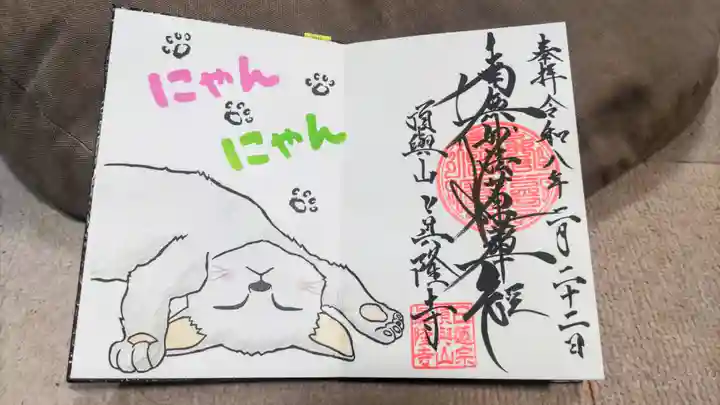 にゃん
にゃん
奉拝 令和八年 二月二十二日
南無妙法蓮華経
頂與山 真隆寺